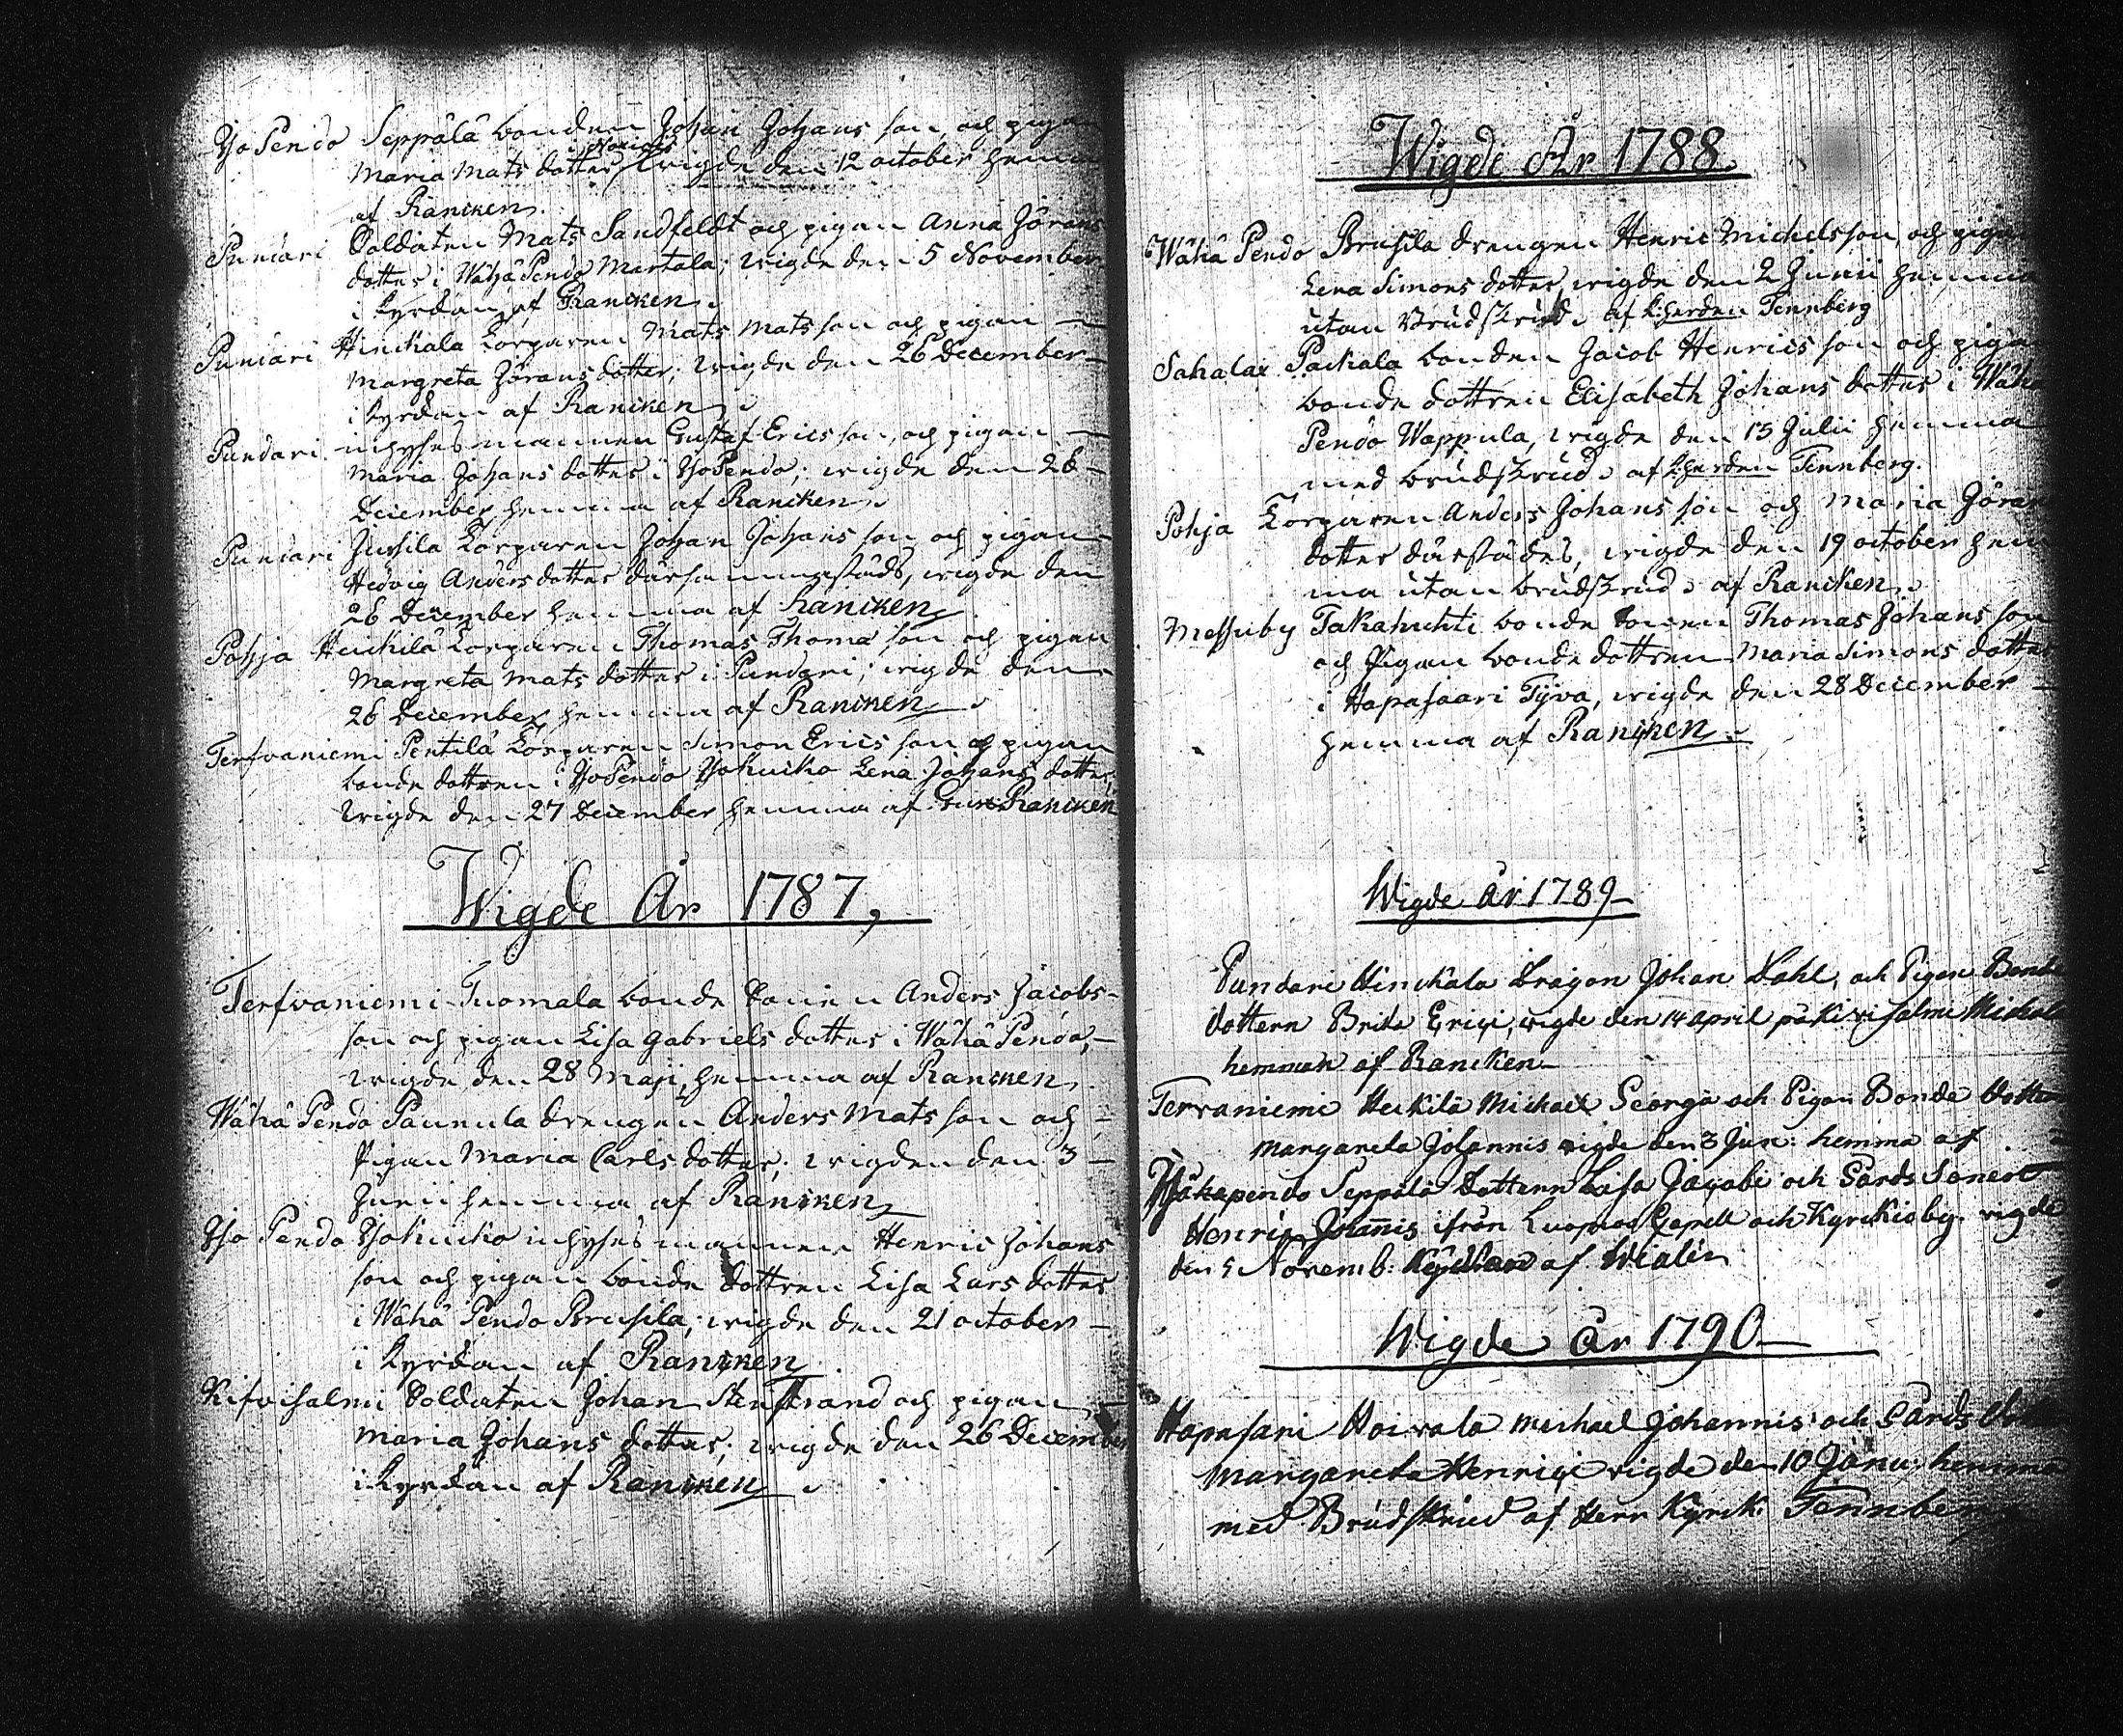 Yso Pendo Seppälä bonden Johan Johans son, och pigan
Maria Mats dotter, wigde den 12 october hemma
af Rancken.
Puntari Soldaten Mats Sandfeldt och pigan Anna Görans
dotter i Wähä Pendo Martala; wigde den 5 November
i Kyrckan af Rancken.
Puntari Hinckala Torparen Mats Mats son och pigan
Margreta Görans dotter; wigde den 26 December
i Kyrckan af Rancken
Pundari inhyses mannen Gustaf Erics son, och pigan
Maria Johans dotter i Yso Pendo; wigde den 26
December hemma af Rancken
Puntari Jussila Torparen Johan Johans son och pigan
Hedvig Anders dotter därsammastäds, wigde den
26 December hemma af Rancken
Pohja Heickilä Torparen Thomas Thoma son och pigan
Margreta Mats dotter i Pundari; wigde den
26 December hemma af Rancken
Terfvaniemi Pentilä Torparen Simon Erics son och pigan
bonde dottren i Yso Pendo Lena Johans dotter
wigde den 27 December hemma af Rancken
Wigde År 1787,
Terfvaniemi Tuomala bonde Sonen Anders Jacobs-
son och pigan Lisa Gabriels dotter i Wähä Pendo,
wigde den 28 Maji, hemma af Rancken
Wähä Pendo Pannula drengen Anders Mats son och
Pigan Maria Carls dotter; wigden den 3
Junii hemma af Rancken
Yso Pendo inhyses mannen Henric Johans
son och pigan bonde dottren Lisa Lars dotter
i Wähä Pendo Brusila; wigde den 21 october
i Kyrckan af Rancken
Kifvisalmi Soldaten Johan Stenstrand och pigan
Maria Johans dotter; wigde den 26 December
i Kyrckan af Rancken
Wigde År 1788.
Wähä Pendo Brusila drengen Henric Michelsson och pigan
Lena Simons dotter wigde den 2 Junii hemma
utan Brudskrud af Tennberg
Sahalax Packala bonden Jacob Henrics son och pigan
bonde dottren Elisabeth Johans dotter i Wähä
Pendo Wappula, wigde den 15 Julii hemma
med brudskrud af Tennberg.
Pohja Torparen Anders Johans son och Maria Göran
dotter därstädes, wigde den 19 october hem
ma utan brudskrud af Rancken
Messuby Takahuhti bonde Sonen Thomas Johans son
och Pigan bonde dottren Maria Simons dotter
i Hapasaari Tÿva, wigde den 28 December
hemma af Rancken
Wigde år 1789
Pundari Hinckala Dragon Johan Dahl, och Pigan Bonde
dottern Brita Erici, wigde den 14 april på Kivisalmi Mickola
hemman af Rancken
Tervaniemi Heckilä Michael Georgii och Pigan Bonde dottern
Margareta Johannis wigde den 3 Jun: hemma af
Seppälä Dottern Lisa Jacobi och Gårds Sonen
Henric Johannis ifrån Luopiois Capell och Kyrckioby. wigde
den 5 Novemb: Kyrckan af Wialén
Wigde år 1790
Hapasari Hoivala Michael Johannis och Gårds
Margareta Henrici wigde den 10 Janu: hemma
med Brudskrud af Herr Kyrck: Tennberg